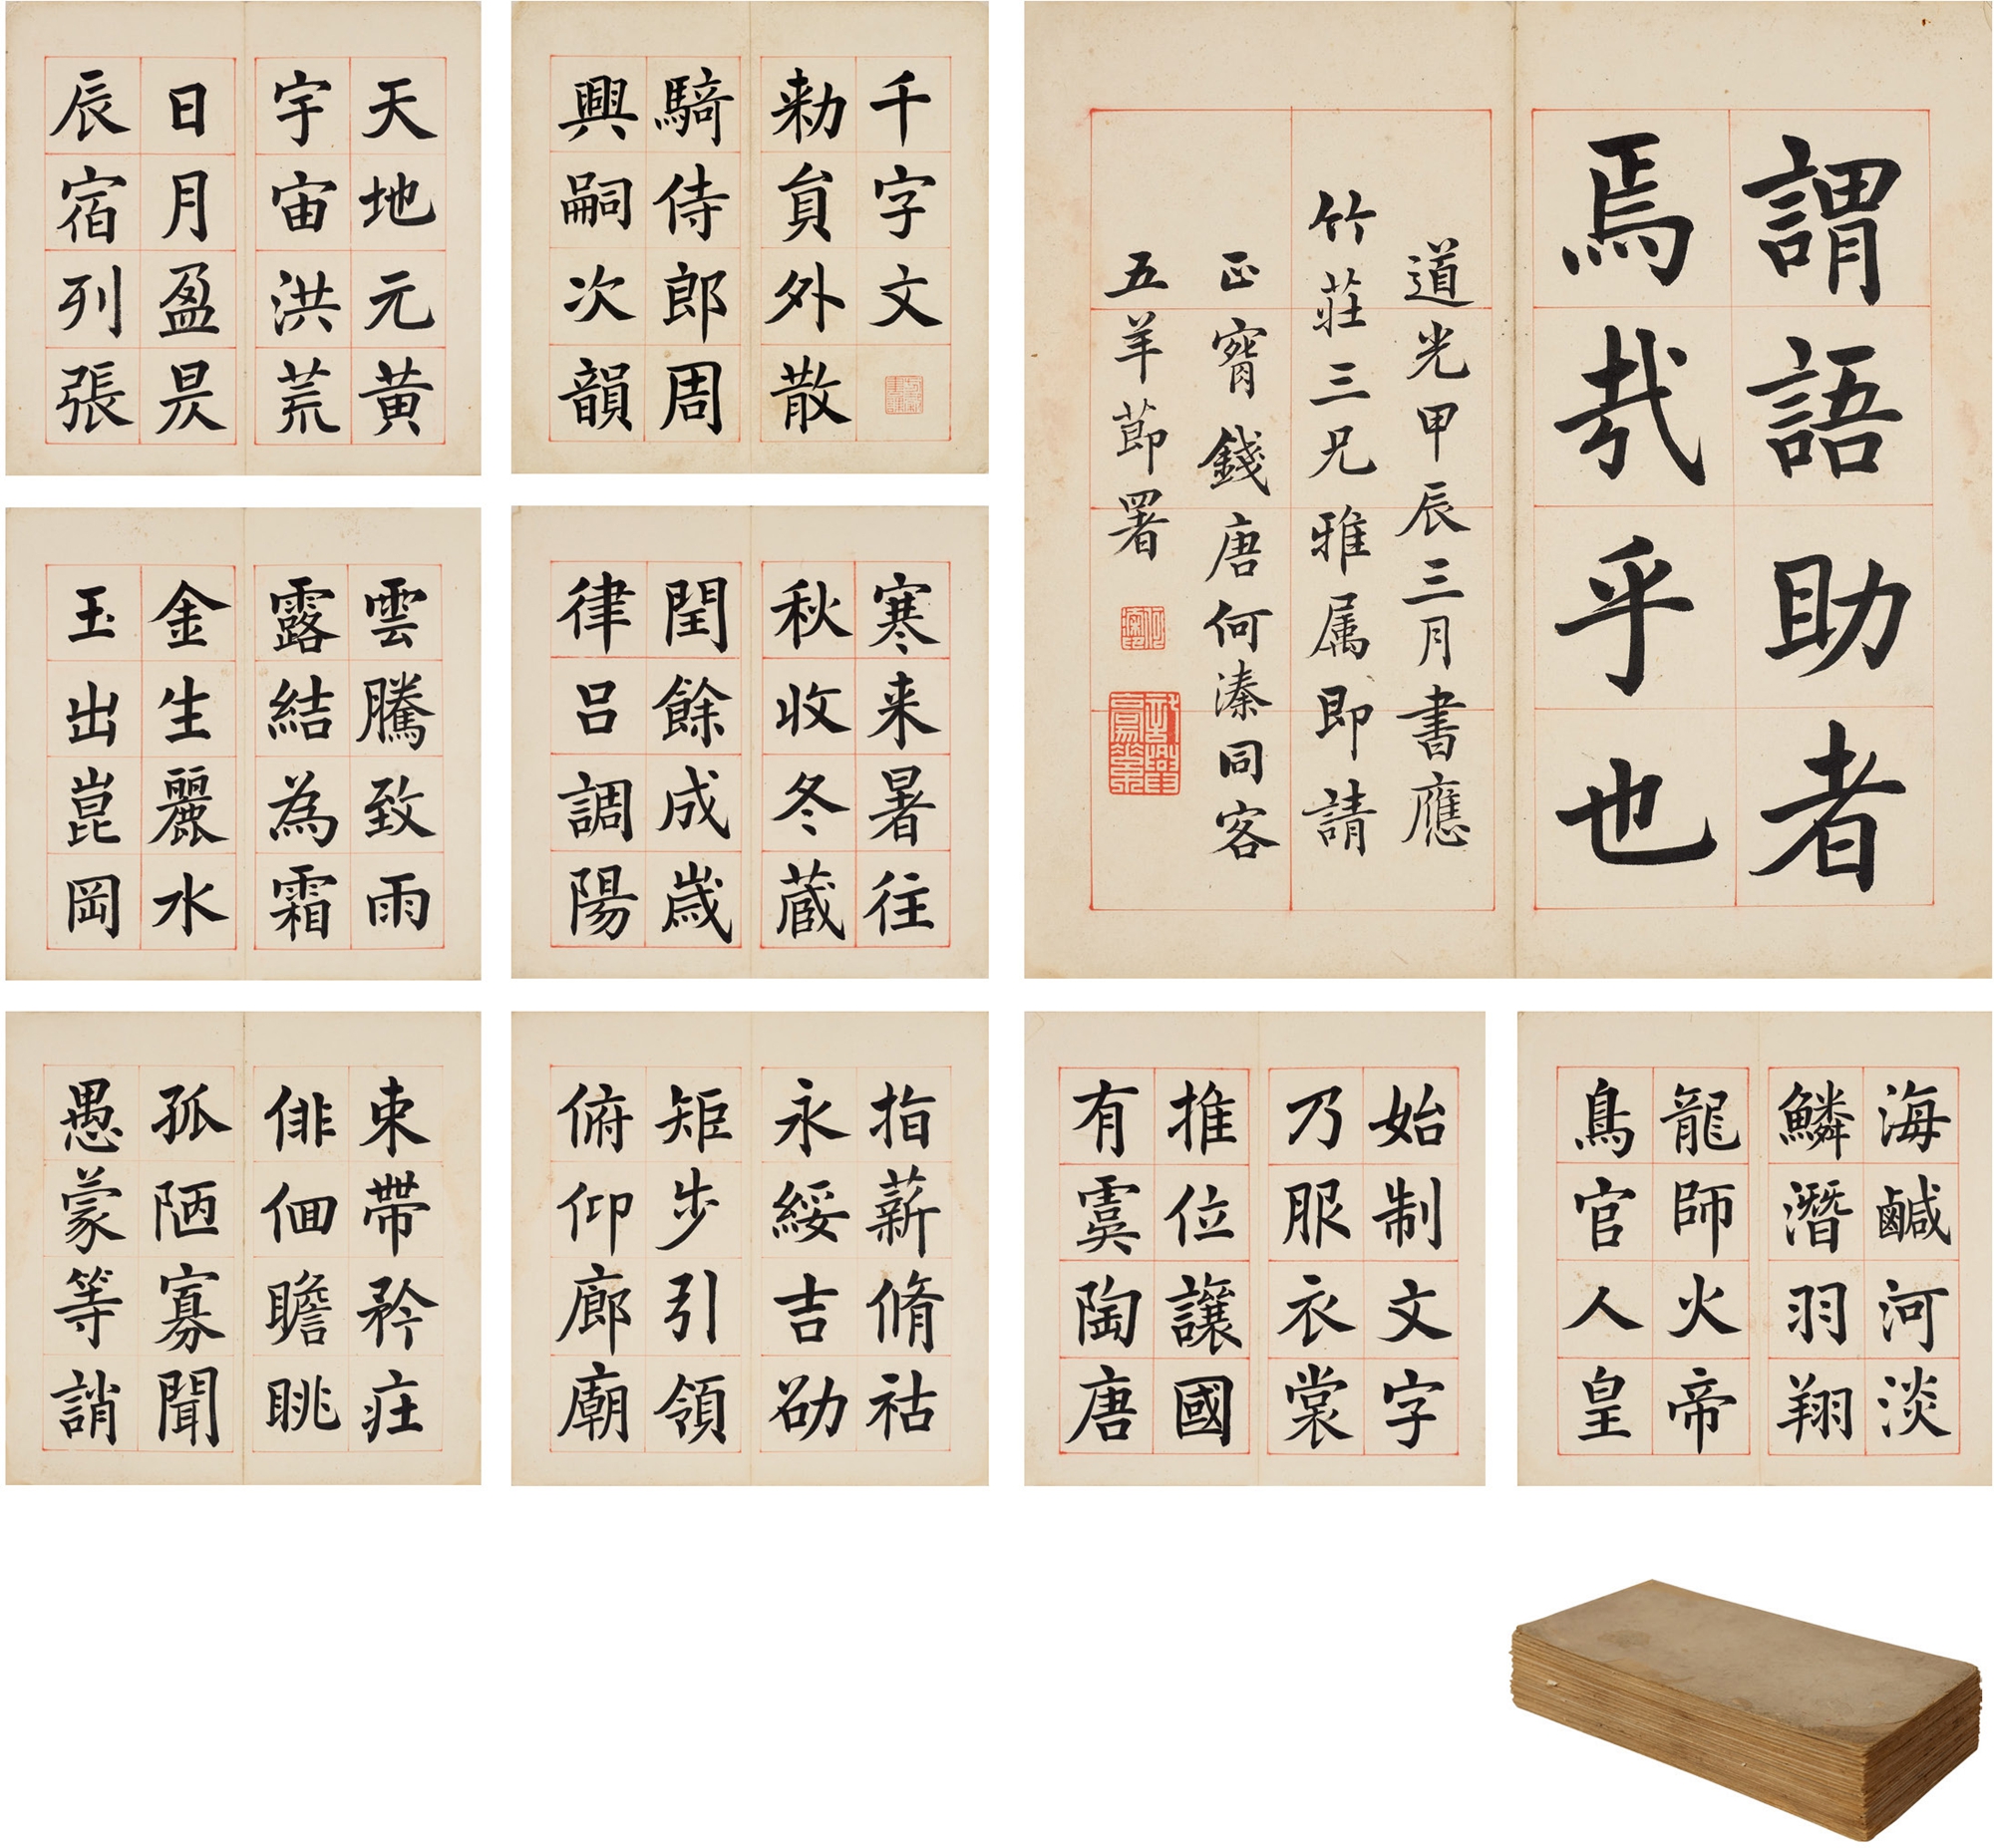 千字文
勑貟外散
騎侍郎周
興嗣次韻
天地元黄
宇宙洪荒
日月盈昃
辰宿列張
寒来暑往
秋收冬蔵
閏餘成嵗
律呂調陽
雲騰致雨
露結為霜
金生麗水
玉出崑岡
海鹹河淡
鱗潛羽翔
龍師火帝
鳥官人皇
始制文字
乃服衣裳
推位讓國
有虞陶唐
指薪脩祜
永綏吉劭
矩步引領
俯仰廊廟
束帶矜庄
俳佪瞻眺
孤陋寡聞
愚蒙等誚
謂語助者
焉哉乎也
道光甲辰三月書應
竹莊三兄雅属即請
正 錢唐何溱同客
五羊莭署